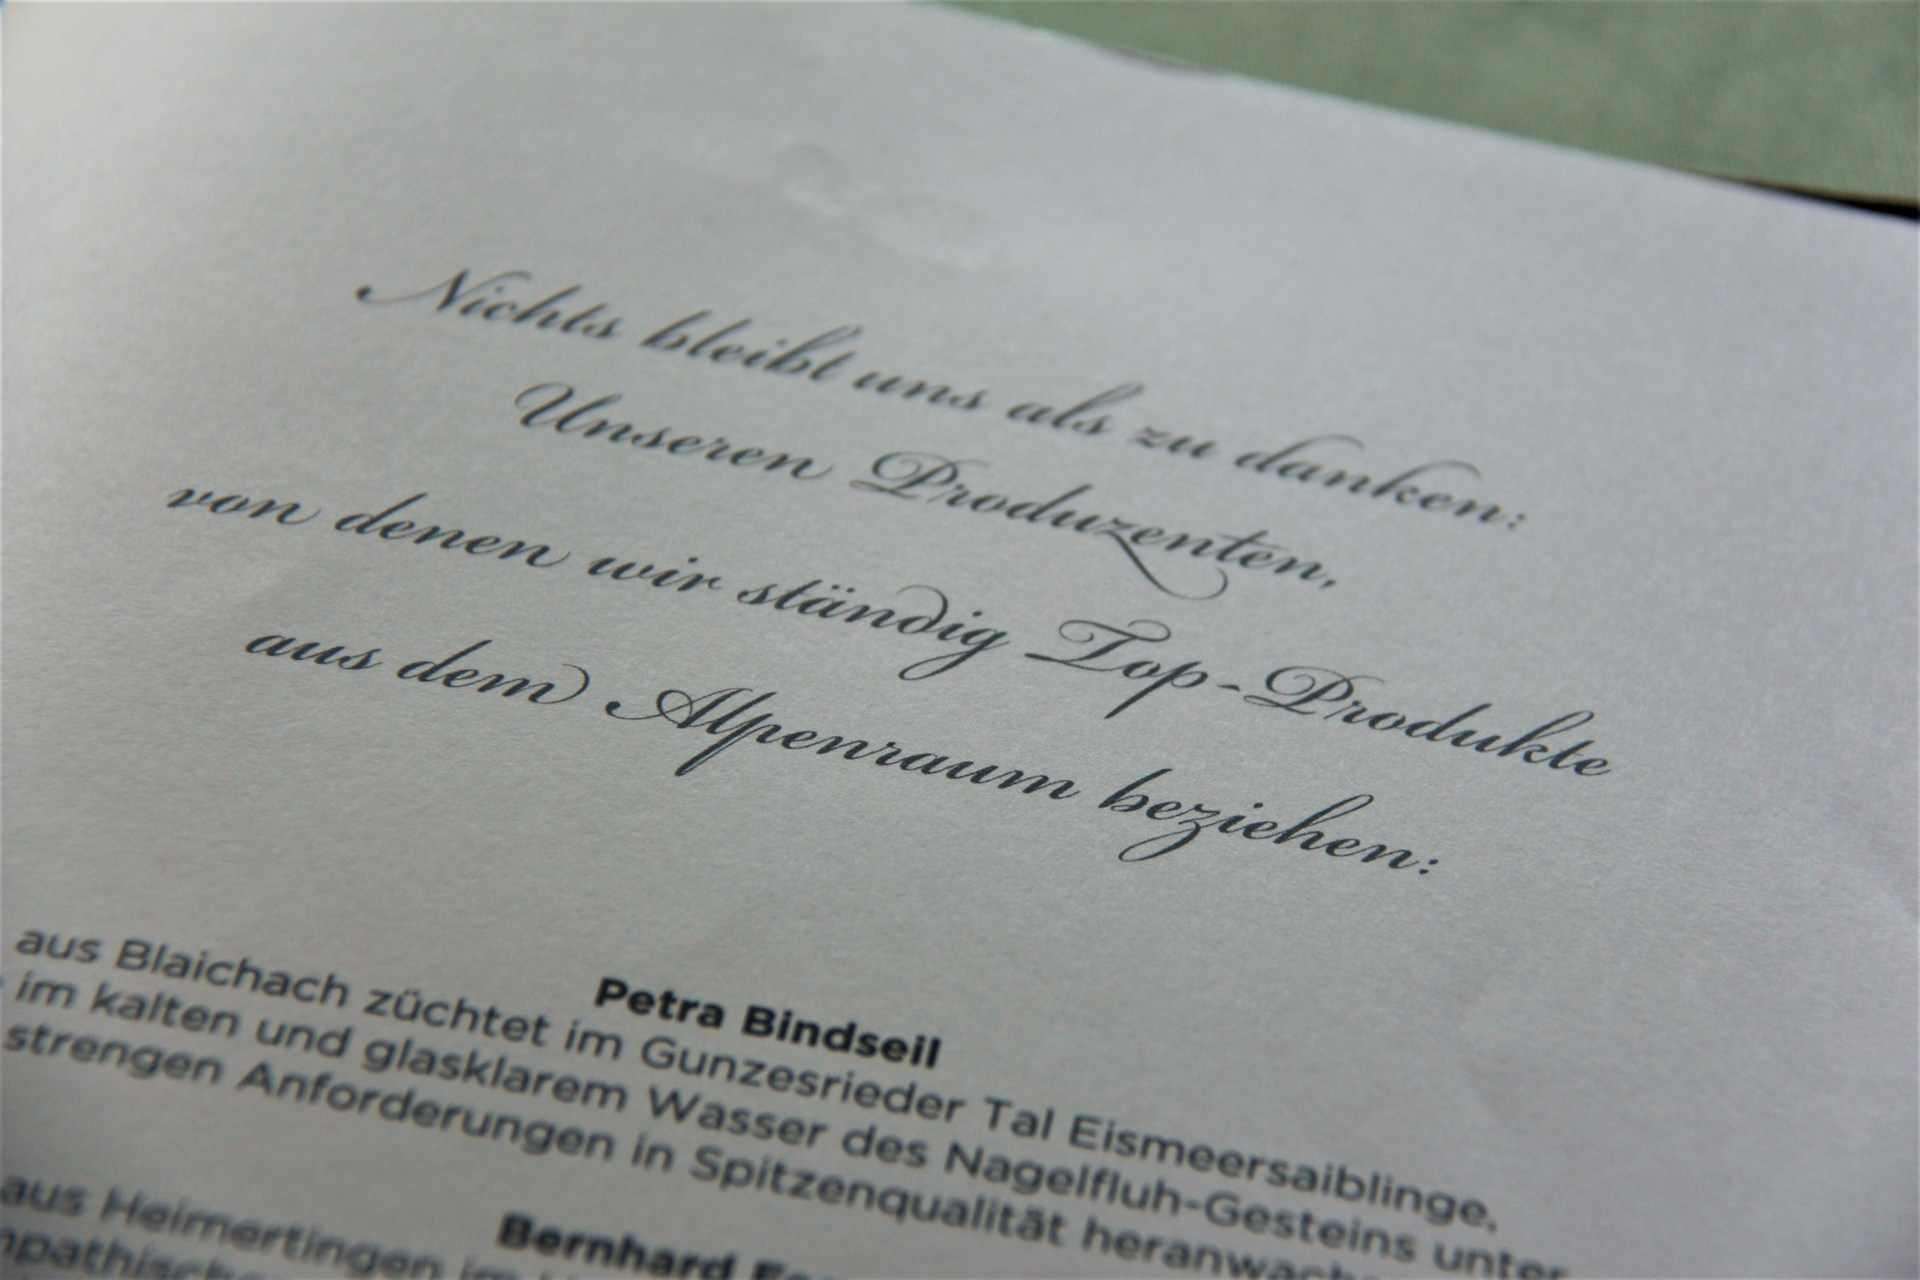 Nichts bleibt uns als zu danken:
Unseren Produzenten,
von denen wir ständig Top-Produkte
aus dem Alpenraum beziehen:
Petra Bindseil
aus Blaichach züchtet im Gunzesrieder Tal Eismeersaiblinge,
im kalten und glasklarem Wasser des Nagelfluh-Gesteins unter
strengen Anforderungen in Spitzenqualität
Bernhard
aus Heimertingen im